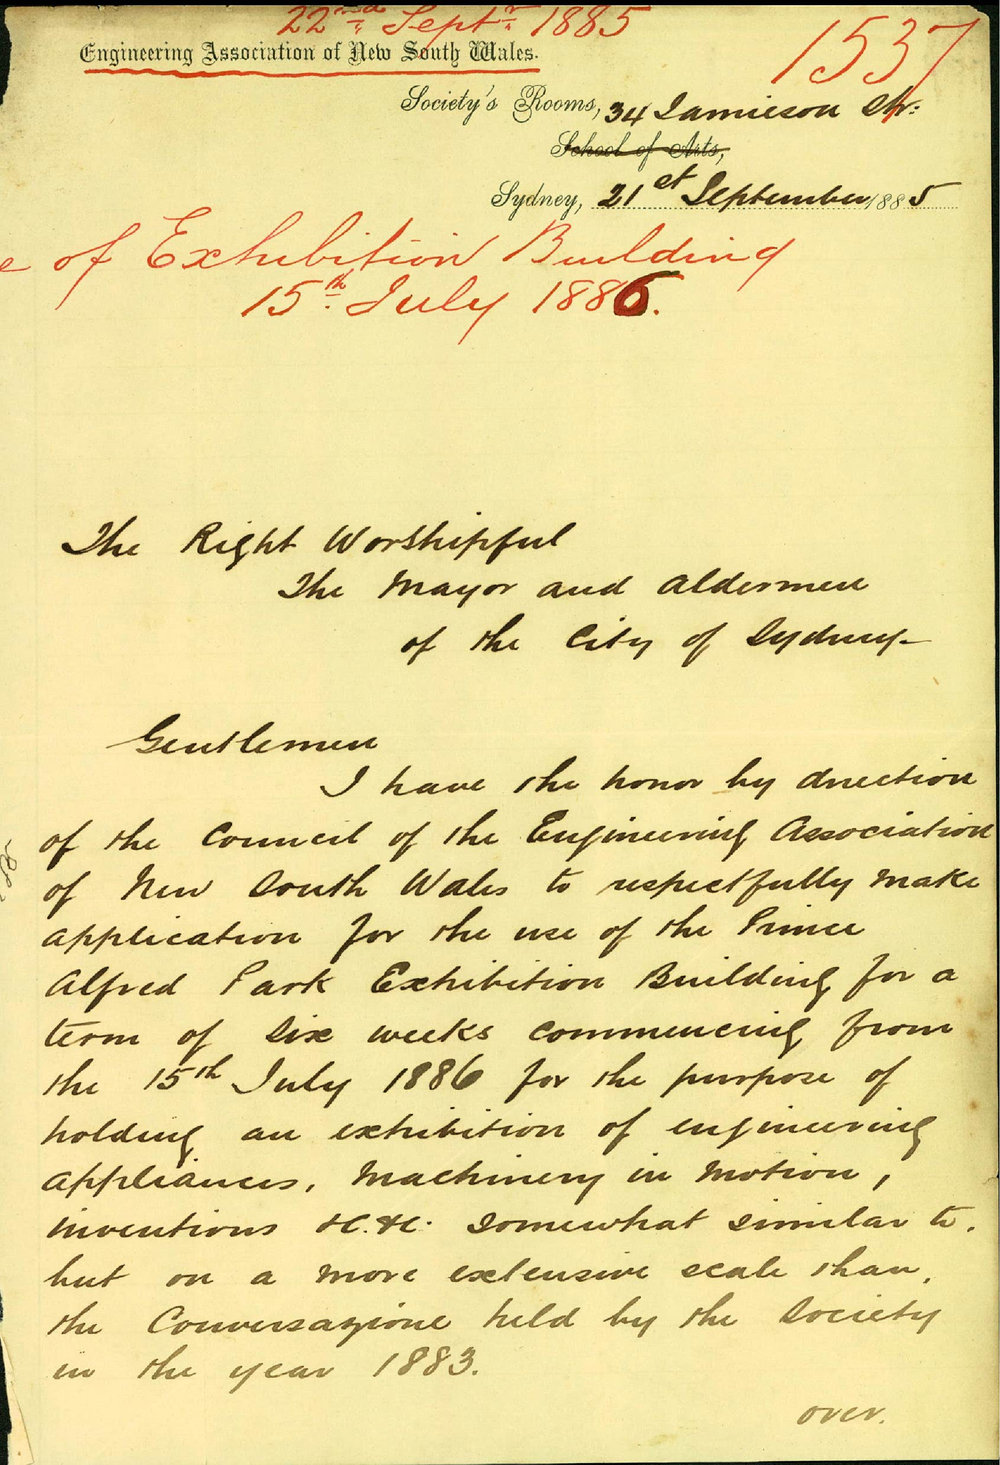 22nd Septr 1885
1537
Engineering Association of New South Wales.
Society's Rooms, 34 Jamieson Str:
School of Arts,
Sydney, 21st September 1885
e of Exhibition Building
15th July 1886.
The Right Worshipful
The Mayor and Aldermen
of the City of Sydney-
Gentlemen
I have the honor by direction
of the Council of the Engineering Association
of New South Wales to respectfully make
application for the use of the Prince
Alfred Park Exhibition Building for a
term of six weeks commencing from
the 15th July 1886 for the purpose of
holding an exhibition of engineering
appliances, machinery in motion,
inventions &c. &c. somewhat similar to.
but on a more extensive scale than,
the Conversazione held by the Society
in the year 1883.
over.